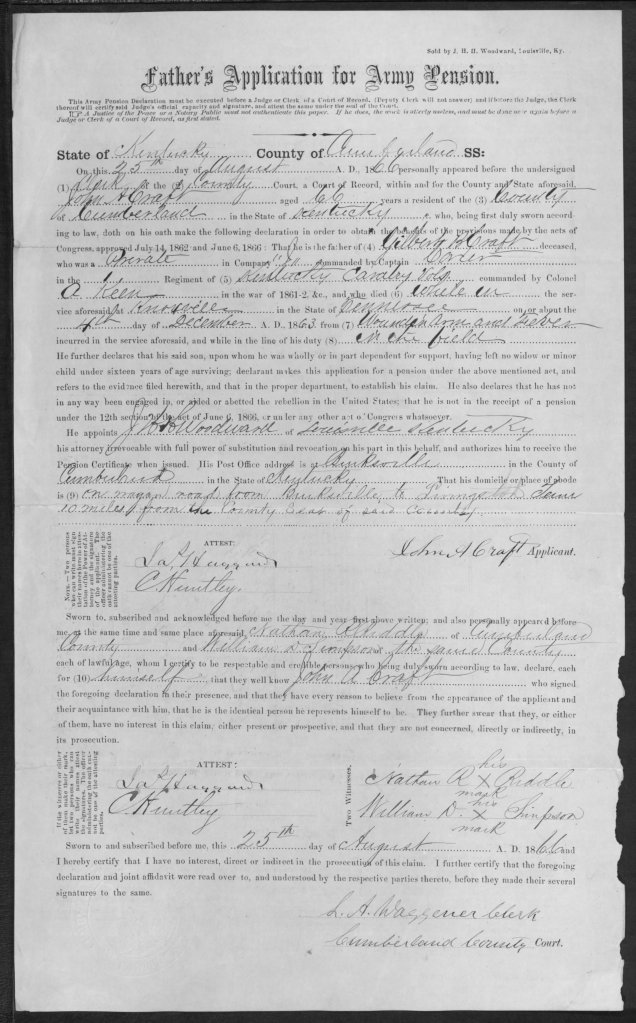 Sold by J. H. B. Woodward, Louisville, Ky.
Father's Application for Army Pension.
This Army Pension Declaration must be executed before a Judge or Clerk of a Court of Record. (Deputy Clerk will not answer) and if before the Judge, the Clerk
thereof will certify said Judge's official capacity and signature, and attest the same under the seal of the Court.
A Justice of the Peace or a Notary Public must not authenticate this paper. If he does, the work is utterly useless, and must be done over again before a
Judge or Clerk of a Court of Record, as first stated.
State of Kentucky County of Cumberland SS:
On this 25th day of August A. D., 186 personally appeared before the undersigned
(1) Clerk for the County Court, a Court of Record, within and for the County and State aforesaid,
John A Craft aged 66 years a resident of the (3) County
of Cumberland in the State of Kentucky, who, being first duly sworn accord-
ing to law, doth on his oath make the following declaration in order to obtain the benefits of the provisions made by the acts of
Congress, approved July 14, 1862 and June 6, 1866: That he is the father of (4) Craft deceased,
who was a Private in Company commanded by Captain
in the 1 Regiment of (5) Kentucky Cavalry Vols commanded by Colonel
in the war of 1861-2, &c., and who died (6) while in the ser-
vice aforesaid at Knoxville in the State of Tennessee on or about the
4th day of December A. D. 1863 from (7) Wounded arm and Fever
incurred in the service aforesaid, and while in the line of his duty (8) In the field
He further declares that his said son, upon whom he was wholly or in part dependent for support, having left no widow or minor
child under sixteen years of age surviving; declarant makes this application for a pension under the above mentioned act, and
refers to the evidence filed herewith, and that in the proper department, to establish his claim. He also declares that he has not
in any way been engaged in, or aided or abetted the rebellion in the United States; that he is not in the receipt of a pension
under the 12th section of the act of June 6, 1866, or under any other act of Congress whatsoever.
He appoints J H B Woodward of Louisville Kentucky
his attorney irrevocable with full power of substitution and revocation on his part in behalf, and authorizes him to receive the
Pension Certificate when issued. His Post Office address is Burksville in the County of
Cumberland in the State of Kentucky That his domicile or place of abode
is (9) on road from Burksville to Livingston Tenn
10 miles from the County Seat of said County
NOTE.—Two persons
who can write must sign
their names here in attes-
tation of the Power of At-
torney and the signature
of the applicant. The
officer administering the
oath cannot be one of the
attesting parties.
ATTEST:
Jas Haggard
C Huntley.
John A Craft Applicant.
Sworn to, subscribed and acknowledged before me the day and year first above written; and also personally appeared before
me at the same time and same place aforesaid Nathan R Riddle of Cumberland
County and William D Simpson of the same County
each of lawful age, whom I certify to be respectable and credible persons, who being duly sworn according to law, declare, each
for (10) himself that they well know John A Craft who signed
the foregoing declaration in their presence, and that they have every reason to believe from the appearance of the applicant and
their acquaintance with him, that he is the identical person he represents himself to be. They further swear that they, or either
of them, have no interest in this claim, either present or prospective, and that they are not concerned, directly or indirectly, in
its prosecution.
If the witnesses or either
of them make their mark,
let two persons who can
write their names attest
the signatures. The officer
administering the oath can-
not be one of the attesting
parties.
ATTEST:
Jas Haggard
C Huntley
Two Witnesses.
Nathan R his X mark Riddle
William D. his X mark Simpson
Sworn to and subscribed before me, this 25th day of August A. D. 1866 and
I hereby certify that I have no interest, direct or indirect in the prosecution of this claim. I further certify that the foregoing
declaration and joint affidavit were read over to, and understood by the respective parties thereto, before they made their several
signatures to the same.
L. A. Waggener Clerk
Cumberland County Court.